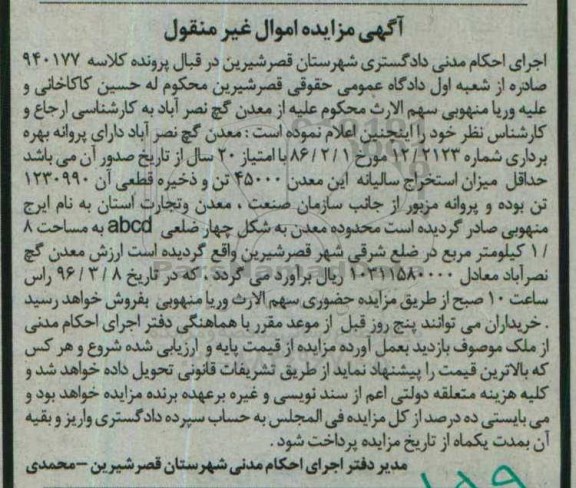 آگهی مزایده اموال غیر منقول
اجرای احکام مدنی دادگستری شهرستان قصرشیرین در قبال پرونده کلاسه ۹۴۰۱۷۷
صادره از شعبه اول دادگاه عمومی حقوقی قصرشیرین محکوم له حسین کاکاخانی و
علیه وریا منهوبی سهم الارث محکوم علیه از معدن گچ نصر آباد به کارشناسی ارجاع و
کارشناس نظر خود را اینچنین اعلام نموده است : معدن گچ نصر آباد دارای پروانه بهره
برداری شماره ۱۲/۲۱۲۳ مورخ ۸۶/۲/۱ با امتیاز ۲۰ سال از تاریخ صدور آن می باشد
حداقل میزان استخراج سالیانه این معدن ۴۵۰۰۰ تن و ذخیره قطعی آن ۱۲۳۰۹۹۰
تن بوده و پروانه مزبور از جانب سازمان صنعت ، معدن وتجارت استان به نام ایرج
منهوبی صادر گردیده است محدوده معدن به شکل چهار ضلعی abcd به مساحت ۸
/۱ کیلومتر مربع در ضلع شرقی شهر قصرشیرین واقع گردیده است ارزش معدن گچ
نصرآباد معادل ۱۰۲۱۱۵۸۰۰۰۰ ریال برآورد می گردد ، که در تاریخ ۹۶/۳/۸ راس
ساعت ۱۰ صبح از طریق مزایده حضوری سهم الارث وریا منهوبی بفروش خواهد رسید
. خریداران می توانند پنج روز قبل از موعد مقرر با هماهنگی دفتر اجرای احکام مدنی
از ملک موصوف بازدید بعمل آورده مزایده از قیمت پایه و ارزیابی شده شروع و هر کس
که بالاترین قیمت را پیشنهاد نماید از طریق تشریفات قانونی تحویل داده خواهد شد و
کلیه هزینه متعلقه دولتی اعم از سند نویسی و غیره برعهده برنده مزایده خواهد بود و
می بایستی ده درصد از کل مزایده فی المجلس به حساب سپرده دادگستری واریز و بقیه
آن بمدت یکماه از تاریخ مزایده پرداخت شود .
مدیر دفتر اجرای احکام مدنی شهرستان قصرشیرین – محمدی